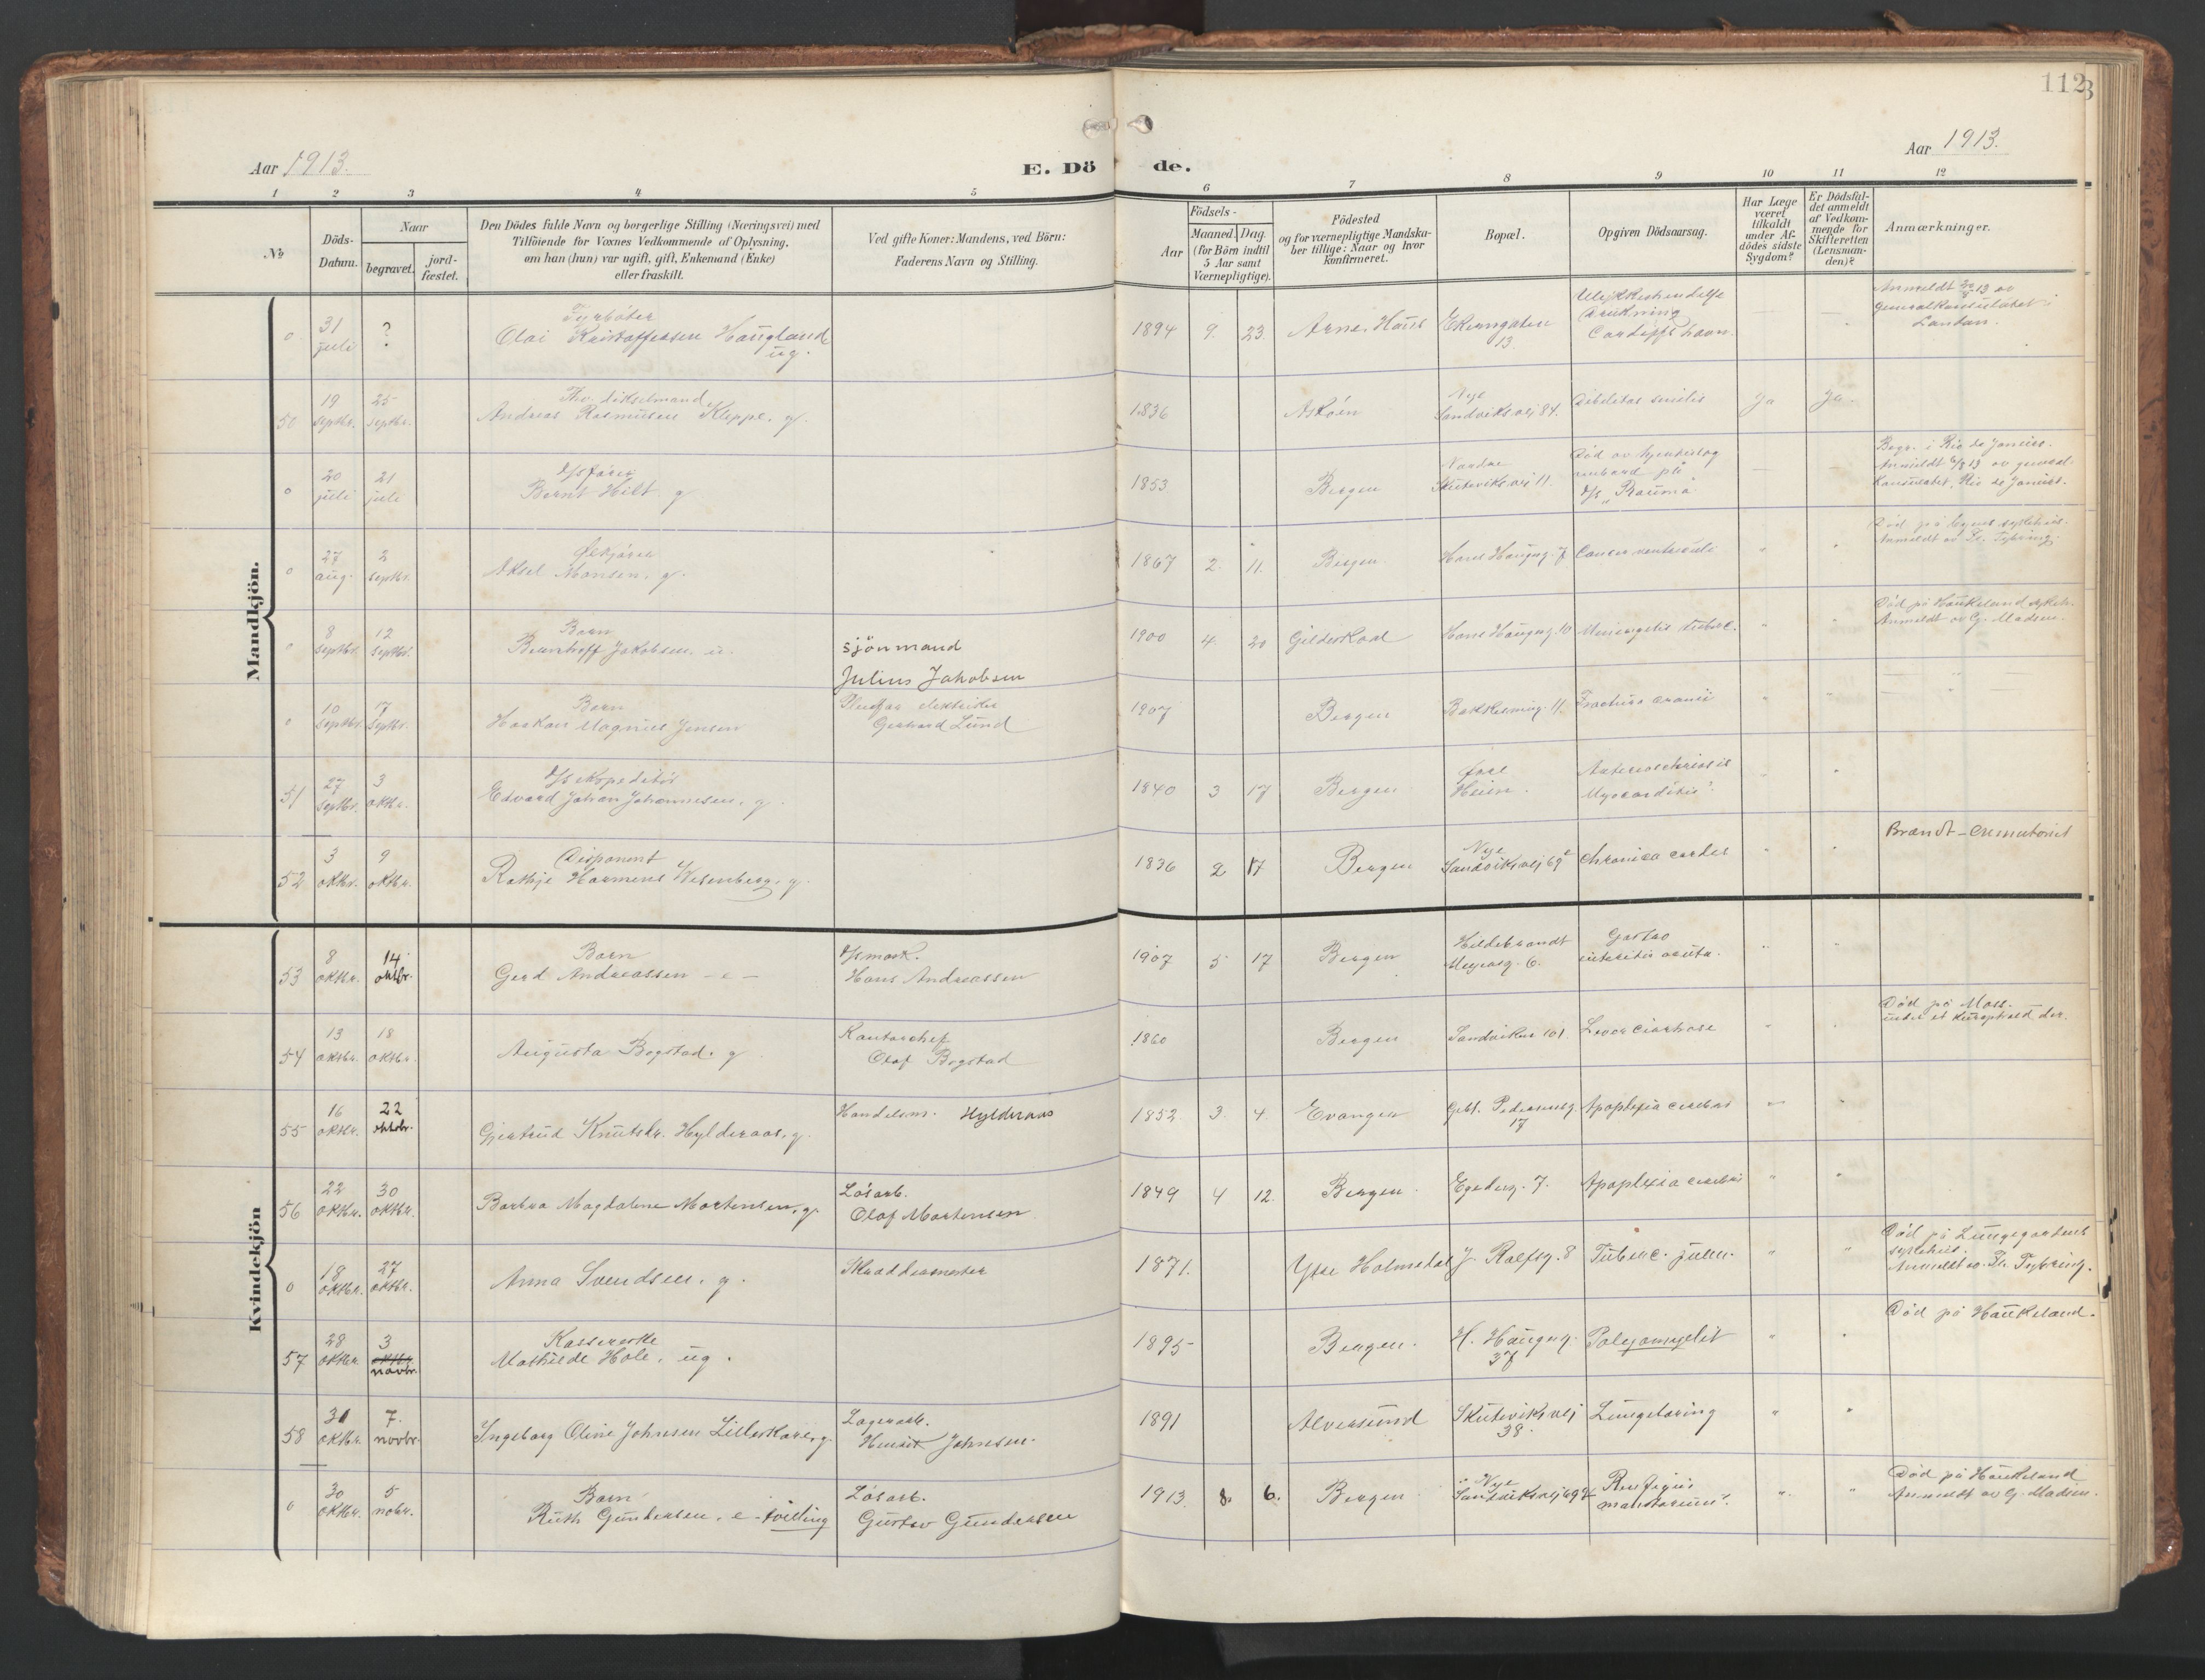 112
Aar 1913.
E. Dö de.
Aar 1913.
1 2 3 4 5 6 7 8 9 10 11 12
№
Döds-
Datum.
Naar
begravet.
jord-
fæstet.
Den Dödes fulde Navn og borgerlige Stilling (Næringsvei) med
Tilföiende for Voxnes Vedkommende af Oplysning,
om han (hun) var ugift, gift, Enkemand (Enke)
eller fraskilt.
Ved gifte Koner: Mandens, ved Börn:
Faderens Navn og Stilling.
Födsels-
Aar
Maaned. Dag.
(for Börn indtil
5 Aar samt
Værnepligtige).
Födested
og for værnepligtige Mandska-
ber tillige: Naar og hvor
konfirmeret.
Bopæl.
Opgiven Dödsaarsag.
Har Læge
været
tilkaldt
under Af-
dödes sidste
Sygdom?
Er Dödsfal-
det anmeldt
af Vedkom-
mende for
Skifteretten
(Lensman-
den)?
Anmærkninger.
Mandkjön.
0 31 juli ?
Fyrböter
Olai Kristoffersen Haugland
ug.
1894 9. 23. Arne, Haus
Ekrengaten
13.
Ulykkeshendelse
drukning
Cardiffs havn.
Anmeldt 20/8 13 av
generalkonsulatet i
London.
50 19 septbr. 25 septbr.
Andreas Rasmusen Kleppe, g.
1836 Askøen
Nye
Sandviksvej 84.
debilitas senilis
Ja Ja.
0 20 juli 21 juli
D/s fører
Bernt Hilt g
1853 Bergen
Nordre
Skuteviksvej 11.
Død av hjerteslag
ombord på
D/s "Rauma"
Begr. i Rio de Janeiro.
Anmeldt 6/8 13 av general-
konsulatet, Rio de Janeiro.
0 27 aug. 2 septbr.
Aksel Monsen, g.
1867 2. 11. Bergen
Hans Haugeg. 7
Cancer ventriculi
Anmeldt av Fr. Tybring.
0 8 septbr. 12 septbr.
Barn
Bernhoff Jakobsen, u.
sjömmand
Julius Jakobsen
1900 4. 20 Gilderskaal
Hans Haugeg. 10
Meningitis tuberc.
Død på Haukeland sykeh.
Anmeldt av G. Madsen.
0 10 septbr. 17 septbr.
Barn
Haakon Magnus Jensen
Pleiefar elektriker
Gerhard Lund
1907 Bergen
Bakkesmug. 11.
Fractura cranii
51 27 septbr. 3 oktbr.
D/s ekspeditör
Edvard Johan Johannesen, g.
1840 3 17 Bergen
Heien.
Arterioschrosis
Myocarditis?
52 3 oktbr. 9 oktbr.
Disponent
Rathje Harmens Wesenberg, g.
1836 2 17 Bergen
Nye
Sandviksvej 69
Chronica cordis
Brændt - crematoriet
Kvindekjön
53 8 oktbr. 14 oktbr.
Barn
Gerd Andreassen - e -
D/smask.
Hans Andreassen
1907 5 17 Bergen
Hildebrandt
Meyersg. 6.
Gastro
enteritis acuta.
54 13 oktbr. 18 oktbr.
Augusta Bogstad. g
Kontorchef
Olaf Bogstad
1860 Bergen
Sandviken 101.
Levercirrhose
Død på Moss.
under et kuropphold der.
55 16 oktbr. 22 oktobr.
Gjertrud Knutsdr. Hylderaas, g.
Handelsm. Hylderaas
1852 3. 4. Evanger
Gebt. Pedersensg.
17
Apoplexia cerebri
56 22 oktbr. 30 oktbr.
Barbra Magdalene Mortensen, g.
Lösarb.
Olaf Mortensen
1849 4 12. Bergen.
Egedesg. 7.
Apoplexia cerebri
0 18 oktbr. 27 oktbr.
Anna Svendsen, g.
Skræddermester
1871. Ytre Holmedal
J. Rolfsg. 8
Tuberc. pulm.
Død på Lungegaardens
sykehus.
Anmeldt av Fr. Tybring.
57 28 oktbr. 3 oktbr. novbr.
Kassererske
Mathilde Hole, ug.
1895 Bergen.
H. Haugesg.
37
Polyomyelit
Død på Haukeland.
58 31 oktbr. 7. novbr.
Ingeborg Oline Johnsen Lilleskare, g.
Lagerarb.
Henrik Johnsen.
1891 Alversund
Skuteviksvej
38.
Lungetæring
0 30 oktbr. 5 nobr.
Barn
Ruth Gundersen, e - tvilling
Lösarb.
Gustav Gundersen
1913. 8. 6. Bergen
Nye
Sandviksvej 69
Død på Haukeland
Anmeldt av G. Madsen.